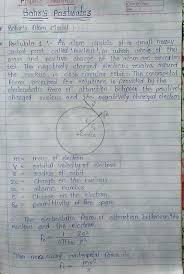 Bohr's Postulates
Bohr's Atom Model :-
Postulate 1 :- An atom consists of a small heavy
central part called nucleus in which whole of the
mass and positive charge of the atom are concentra-
ted. The negatively charged electrons revolve around
the nucleus in circular orbits. The centripetal
force required for rotation is provided by the
electrostatic force of attraction between the positively
charged nucleus and the negatively charged electron.
m = mass of electron
v = orbital velocity of electron
r = radius of orbit
Ze = charge on the nucleus
Z = atomic number
e = charge on the electron
ε₀ = permittivity of free space
The electrostatic force of attraction between the
nucleus and the electron
The necessary centripetal force